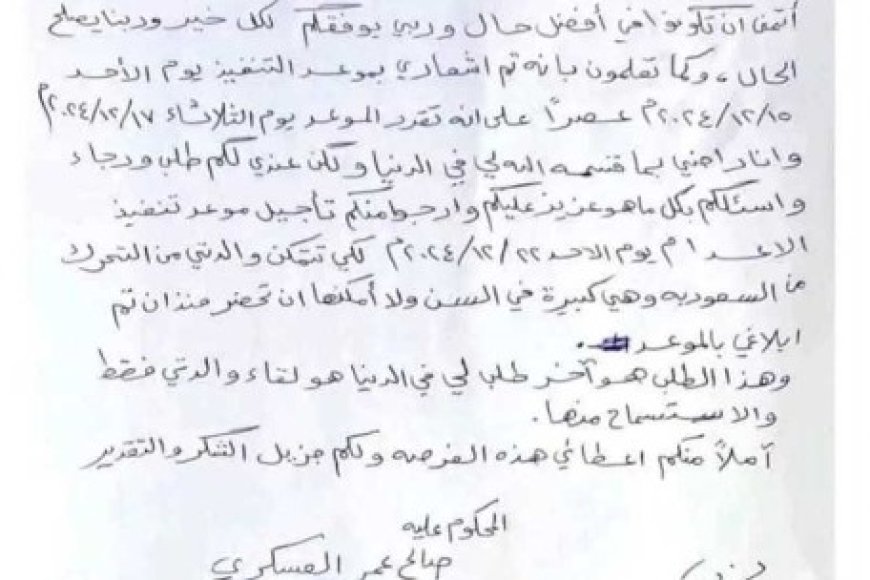 أتمنى ان تكونوا في أفضل حال وربي يوفقكم لكل خير وربنا يصلح
الحال ، وكما تعلمون بانه تم اشعاري بموعد التنفيذ يوم الأحد
٢٠٢٤/١٢/١٥م عصراً على انه تقرر الموعد يوم الثلاثاء ٢٠٢٤/١٢/١٧م
وانا راضي بما قسمه الله لي في الدنيا ولكن عندي لكم طلب ورجاء
واسئلكم بكل ما هو عزيز عليكم وارجوا منكم تأجيل موعد تنفيذ
الاعدام يوم الاحد ٢٠٢٤/١٢/٢٢م لكي تتمكن والدتي من التحرك
من السعوديه وهي كبيرة في السن ولا أمكنها ان تحضر منذ ان تم
ابلاغي بالموعد .
وهذا الطلب هو آخر طلب لي في الدينا هو لقاء والدتي فقط
والاستسماح منها .
آملاً منكم اعطائي هذه الفرصه ولكم جزيل الشكر والتقدير
المحكوم عليه
صالح عمر العسكري